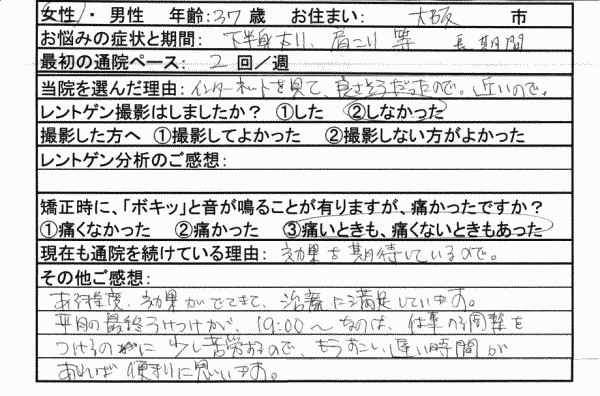 女性 ・ 男性 年齢:37歳 お住まい: 大阪 市
お悩みの症状と期間: 下半身太り、肩こり 等 長期間
最初の通院ペース: 2 回/週
当院を選んだ理由: インターネットを見て、良さそうだったので。近いので。
レントゲン撮影はしましたか? ①した ②しなかった
撮影した方へ ①撮影してよかった ②撮影しない方がよかった
レントゲン分析のご感想:
矯正時に、「ボキッ」と音が鳴ることが有りますが、痛かったですか?
①痛くなかった ②痛かった ③痛いときも、痛くないときもあった
現在も通院を続けている理由: 効果を期待しているので。
その他ご感想:
ある程度、効果がでてきて、治療に満足しています。
平日の最終うけつけが、19:00〜なのは、仕事の調整を
つけるのに少し苦労するので、もう少し遅い時間が
あれば便利に思います。